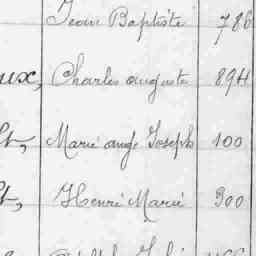 Jean Baptiste 786
ux, Charles auguste 894
t, Marie ange Joseph 100
t, Henri Marie 300